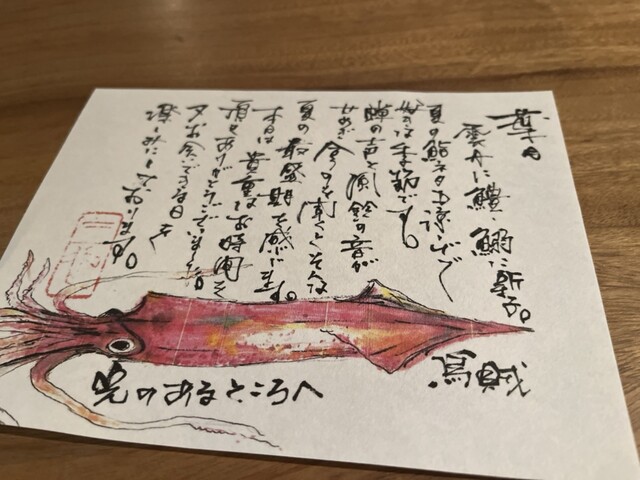 葉月
雲丹に鱧、に新子。
夏の鮨ネタも涼しげで
季節です。
蝉の声と風鈴の音が
せめぎ合うのを聞くとそんな
夏の最盛期を感じます。
本日は貴重なお時間を
頂きありがとうございました。
又お会いできる日を
楽しみにしております。
光のあるところへ